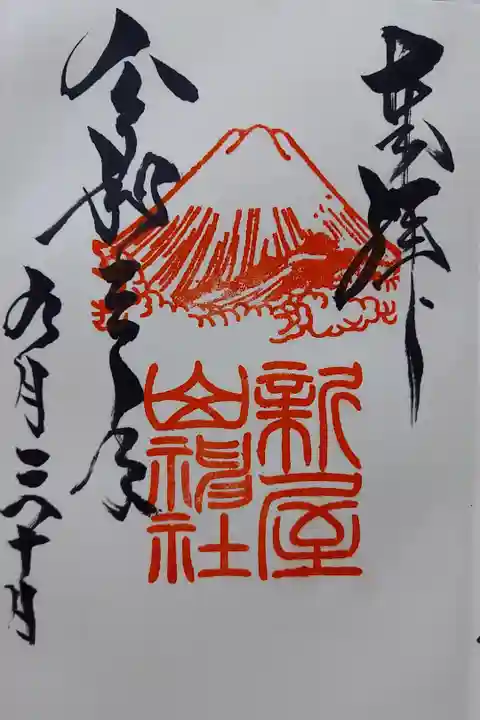 奉拝
新屋
山神社
令和三年
九月三十日